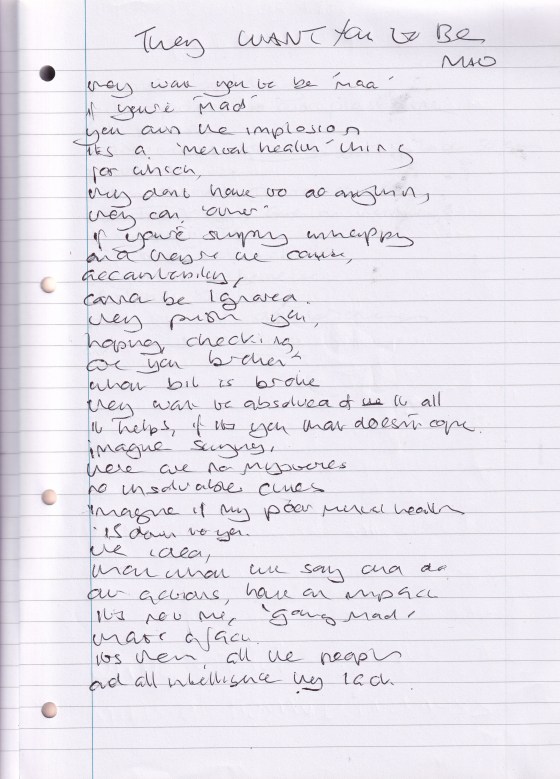 They WANT You to Be
MAD
they want you to be 'mad'
if you're 'Mad'
you own the implosion
its a 'mental health' thing
for which,
they dont have to do anything,
they can, 'other'
if you're simply unhappy
and they're the cause,
accountability,
canna be Ignored.
they push you,
hoping, checking,
are you broken?
what bit is broke
they want to be absolved of it all
it helps, if its you that doesn't cope.
imagine saying,
there are no mysteries
no unsolvable clues
imagine if my poor mental health
is down to you.
the idea,
that what we say and do
our actions, have an impact
its not me, 'going mad'
that's a fact.
its them, all the people
and all intelligence they lack.